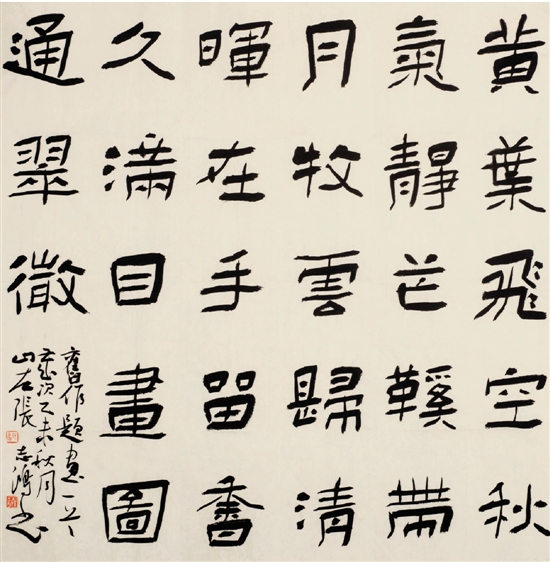 黄葉飛空秋
氣靜芒鞵帶
月牧雲歸清
暉在手留香
久滿目畫圖
通翠微
舊作題畫一首
歲次乙未秋月
山左張志鴻書